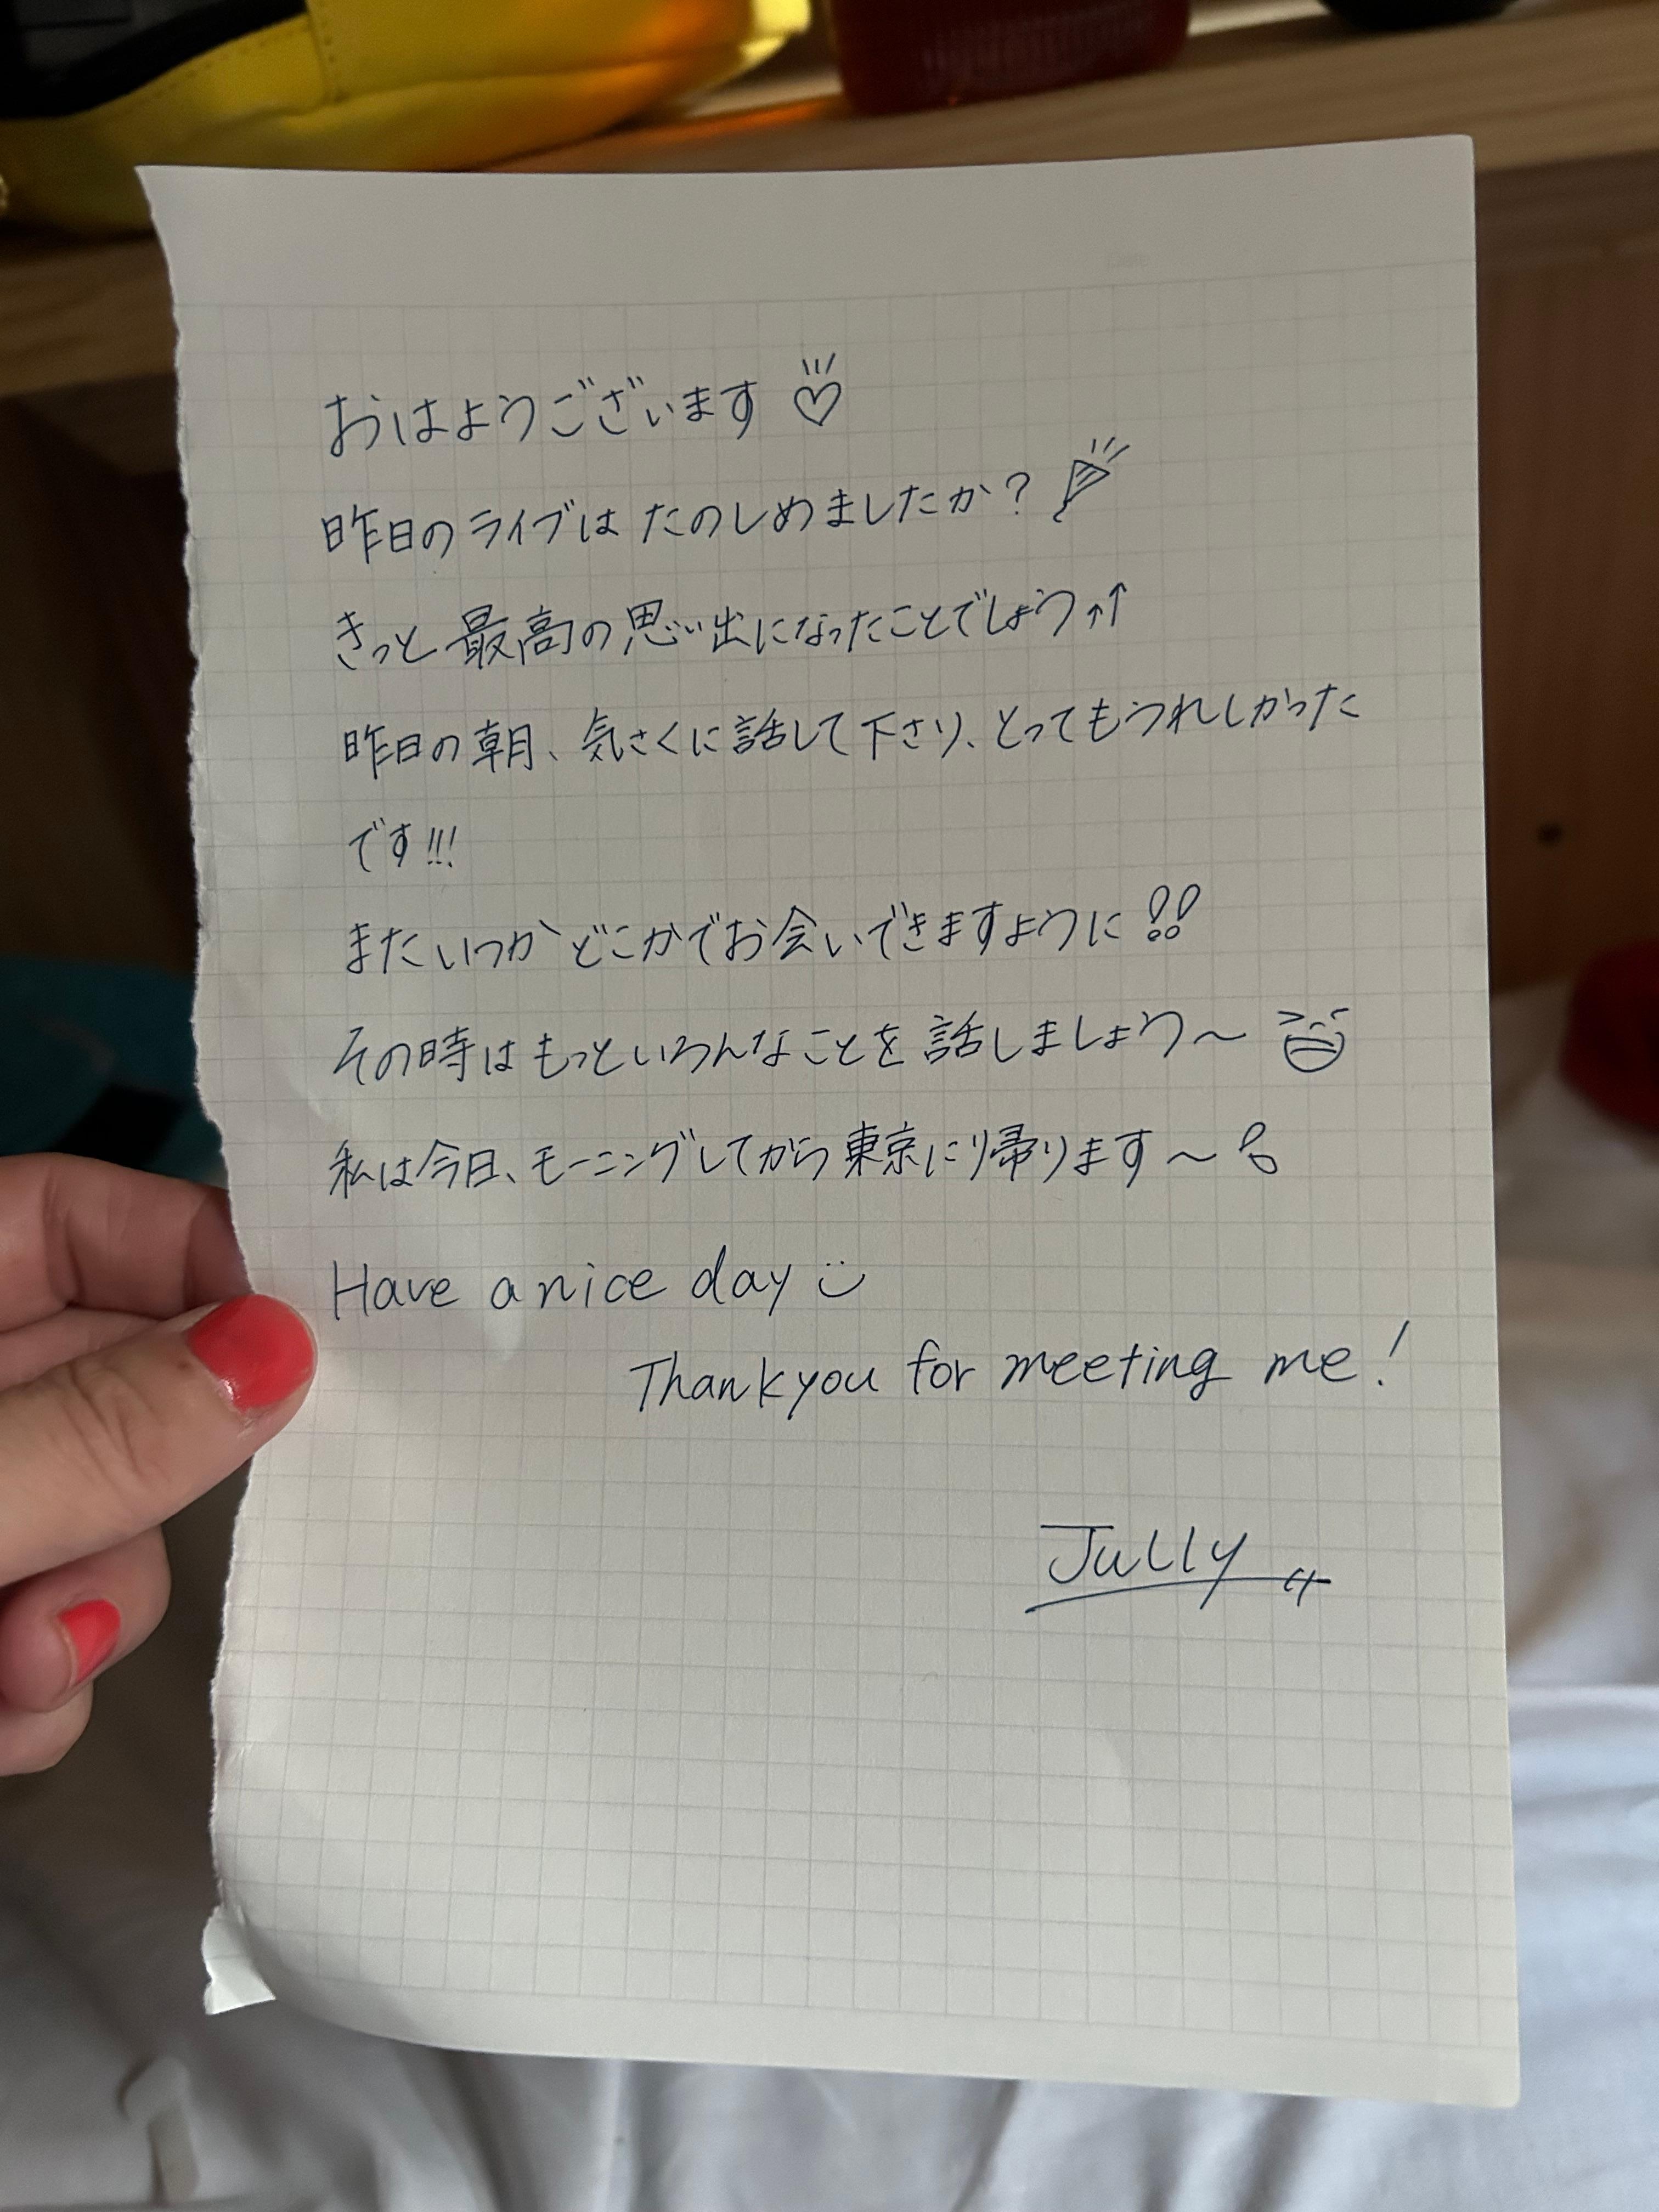 おはようございます♡
昨日のライブはたのしめましたか？
きっと最高の思い出になったことでしょう↑↑
昨日の朝、気さくに話して下さり、とってもうれしかった
です!!!
またいつかどこかでお会いできますように!!
その時はもっといろんなことを話しましょう～
私は今日、モーニングしてから東京に帰ります～
Have a nice day
Thank you for meeting me!
Jully